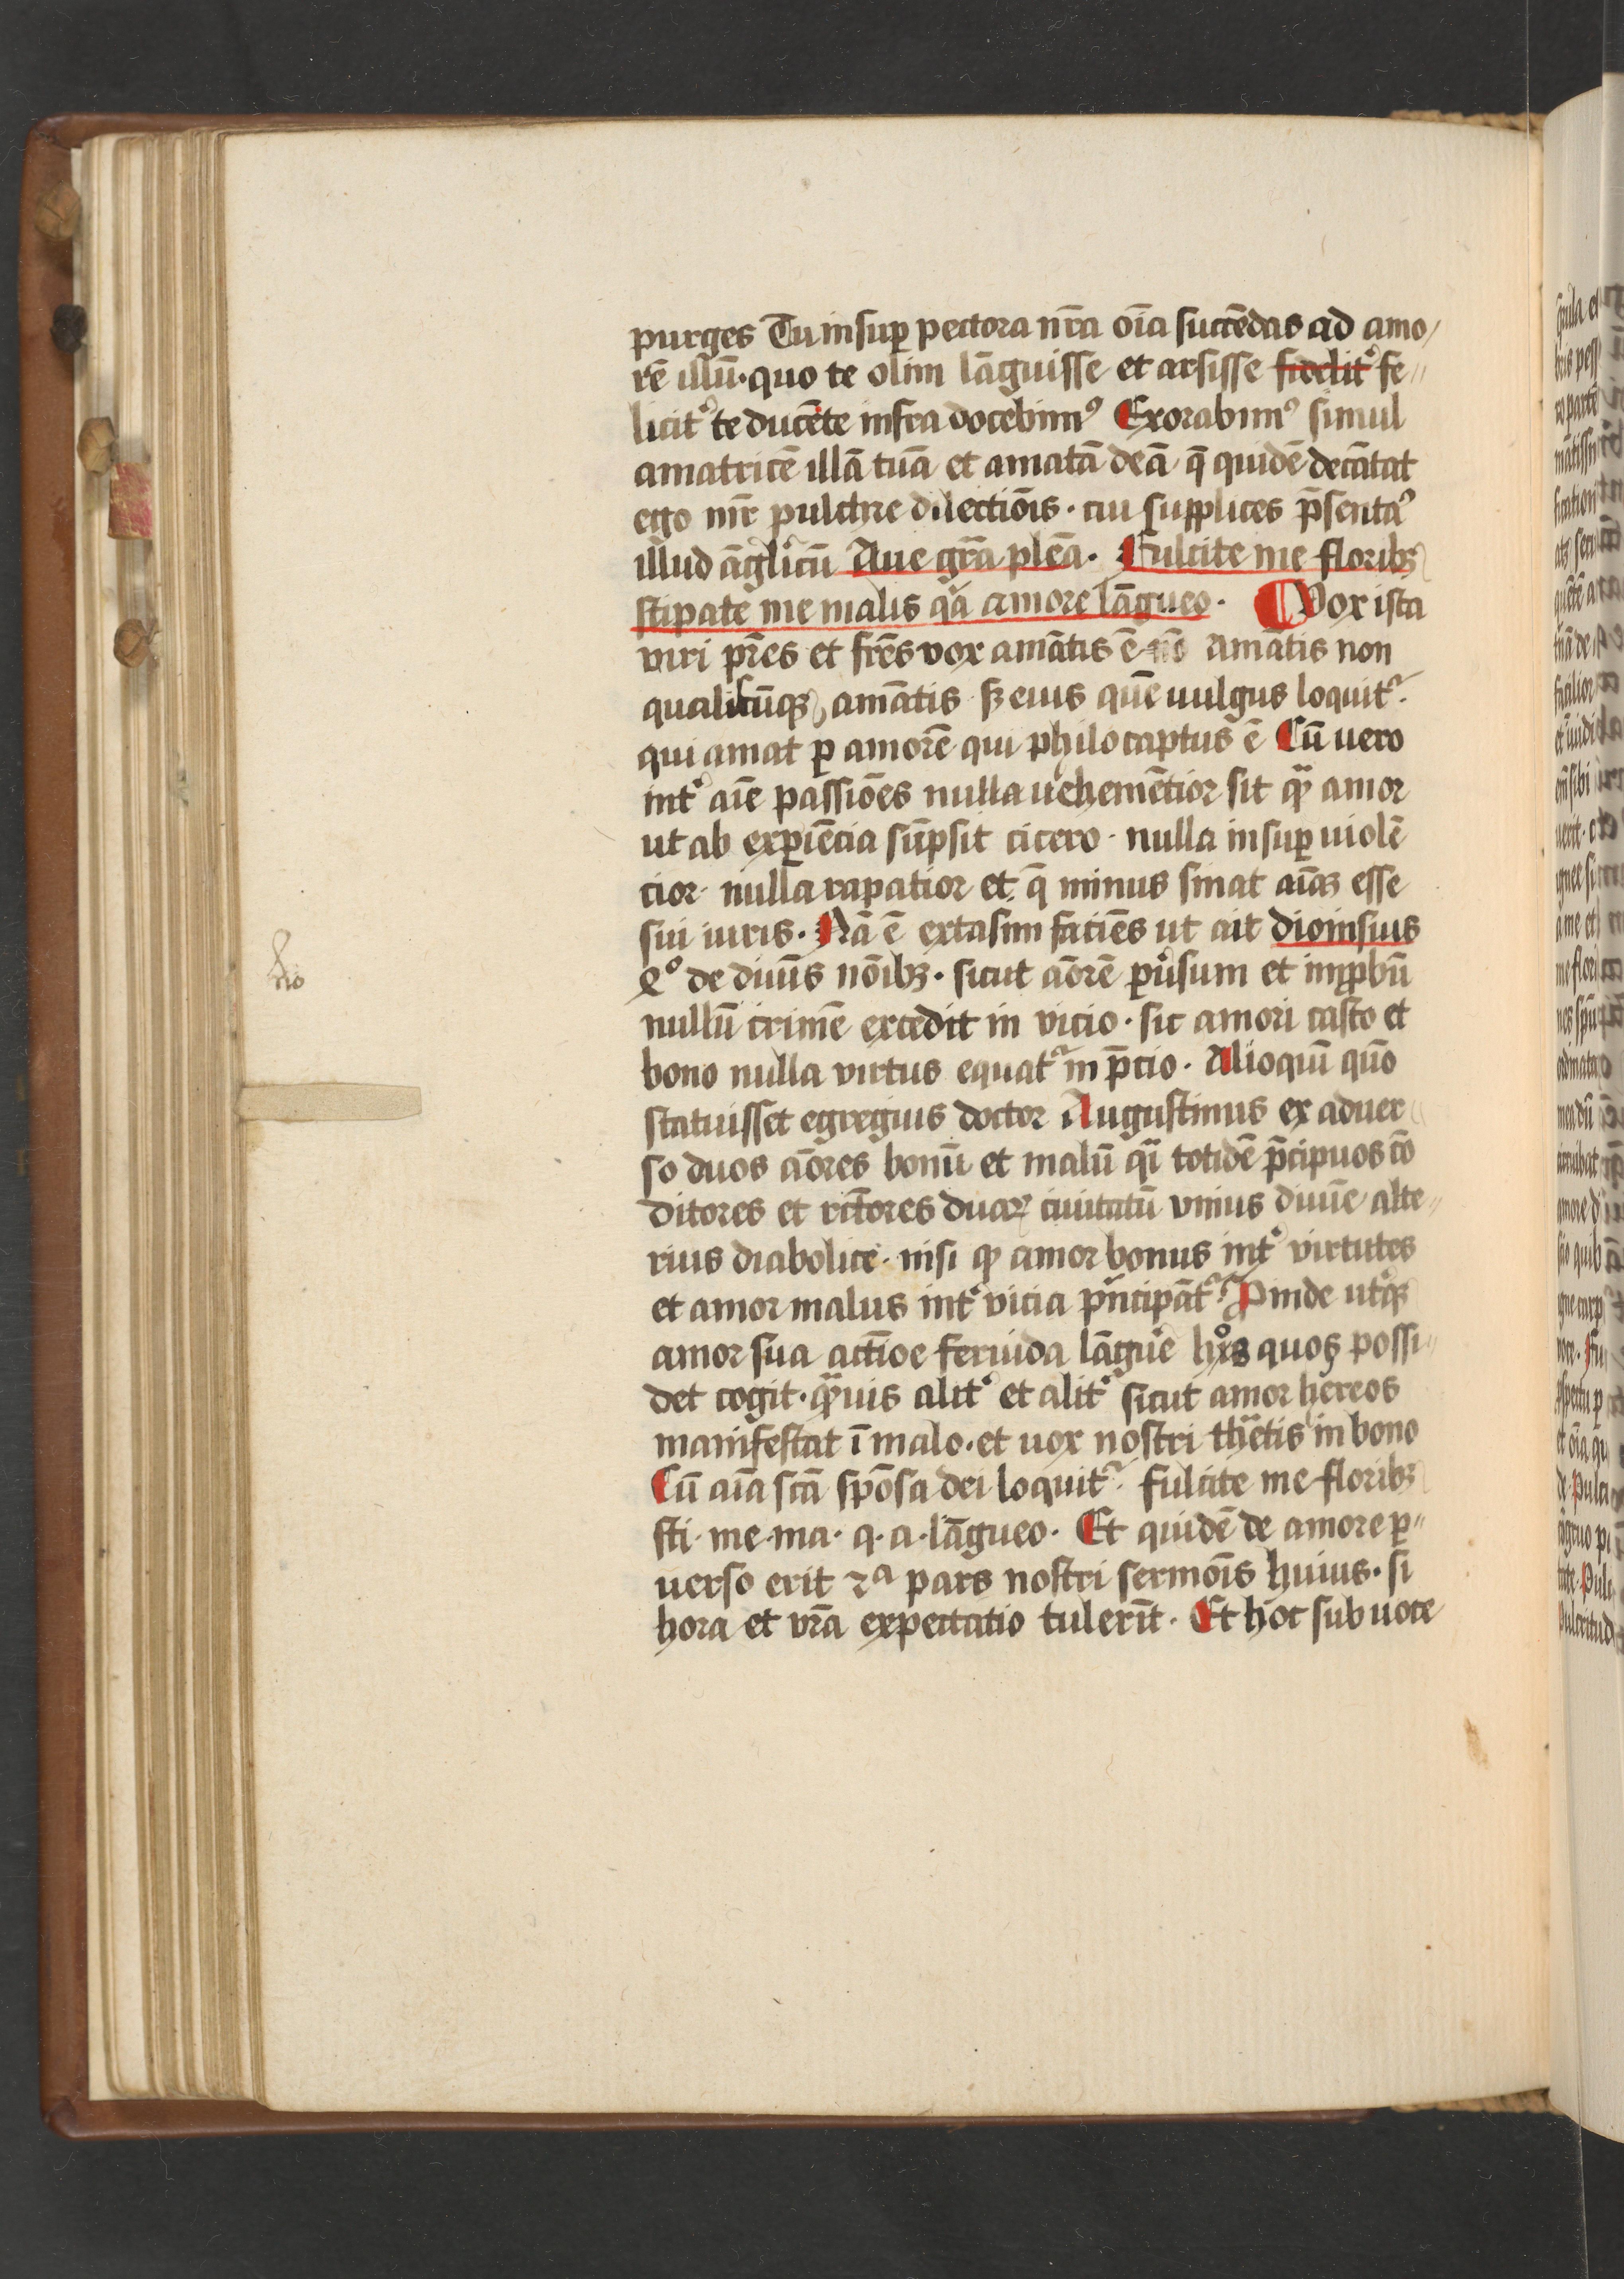 purges Tu insuꝑ pectora nr̄a oīa succēdas ad amo/
rē illū · quo te olim lāguisse et arsisse fidelit᷑ fe〃
licit᷑ te ducēte infra docebimꝰ Exorabimꝰ simul
amatricē illā tuā et amatā deā q̄ quidē decātat
ego mr̄ pulchre dilectiōis · cui supplices p̄sentaꝰ
illud āglicū Aue gr̄a plēa · Fulcite me floribꝫ
stipate me malis qꝛa amore lāgueo · Vox ista
viri pr̄es et fr̄es vox amātis ē amātis non
qualiscūqꝫ amātis sꝫ eius quē uulgus loquit᷑
qui amat ꝑ amorē qui philocaptus ē Cū uero
int᷑ aīe passiōes nulla uehemētior sit qᷓ amor
ut ab exꝑiēcia sūpsit cicero · nulla insuꝑ uiolē
cior · nulla rapatior et q̄ minus sinat aīaꝫ esse
sui iuris · Nā ē extasim faciēs ut ait dionisius
4º de diuīs nōibꝫ · sicut aōrē ꝑu᷑sum et imꝓbū
nullū crimē excedit in vicio · sic amori casto et
bono nulla virtus equat᷑ in p̄cio · Alioquī quō
statuisset egregius doctor Augustinus ex aduer
so duos aōres bonū et malū qᷓi totidē p̄cipuos cō
ditores et rc̄tores duaꝝ ciuitatū vnius diuīe alte〃
rius diabolice · nisi ꝙ amor bonus int᷑ virtutes
et amor malus int᷑ vicia pⁱncipāt᷑ · Proinde ut᷑qꝫ
amor sua actiōe feruida lāgue᷑ hōs quos possi〃
det cogit · qᷓuis alit᷑ et alit᷑ sicut amor hereos
manifestat ī malo · et uox nostri thētis in bono
Cū aīa scā spōsa dei loquit᷑ · fulcite me floribꝫ
sti · me · ma · q · a · lāgueo · Et quidē de amore ꝑ〃
uerso erit 2ᵃ pars nostri sermōis huius · si
hora et vr̄a expectatio tulerīt · Et hoc sub uoce